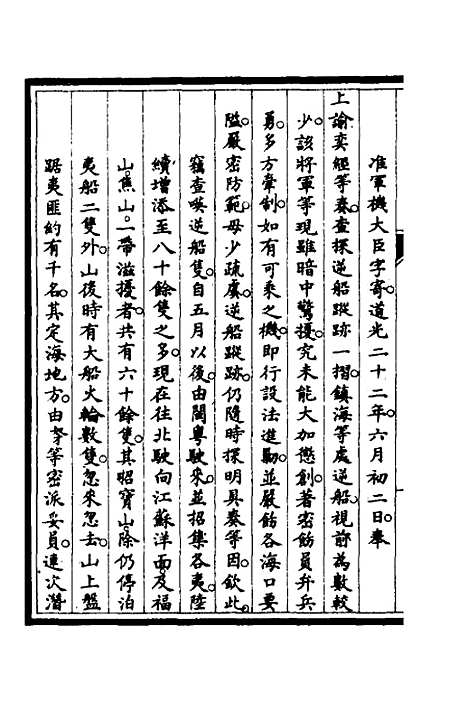 准軍機大臣字寄道光二十二年六月初二日奉
上諭奕經等奏查探逆船蹤跡一摺鎮海等處逆船視前為數較
少該將軍等現雖暗中驚擾究未能大加懲創著密飭員弁兵
勇多方牽制如有可乘之機即行設法進勦並嚴飭各海口要
隘嚴密防範毋少疏虞逆船蹤跡仍隨時探明具奏等因欽此
竊查㗎逆船隻自五月以後由閩粵駛來並招集各夷陸
續增添至八十餘隻之多現在往北駛向江蘇洋面及福
山焦山一帶滋擾者共有六十餘隻其昭寶山除仍停泊
夷船二隻外山後時有大船火輪數隻忽來忽去山上盤
踞夷匪約有千名其定海地方由等密派妥員連次潛